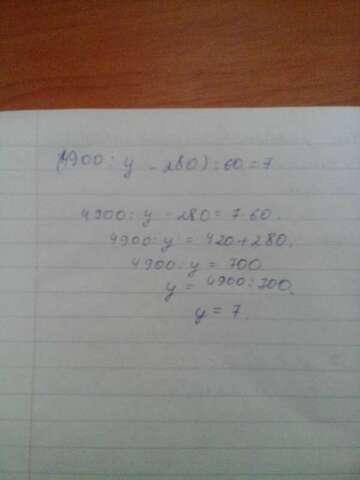 (4900 : y - 280) : 60 = 7
4900 : y - 280 = 7 · 60.
4900 : y = 420 + 280.
4900 : y = 700.
y = 4900 : 700.
y = 7.